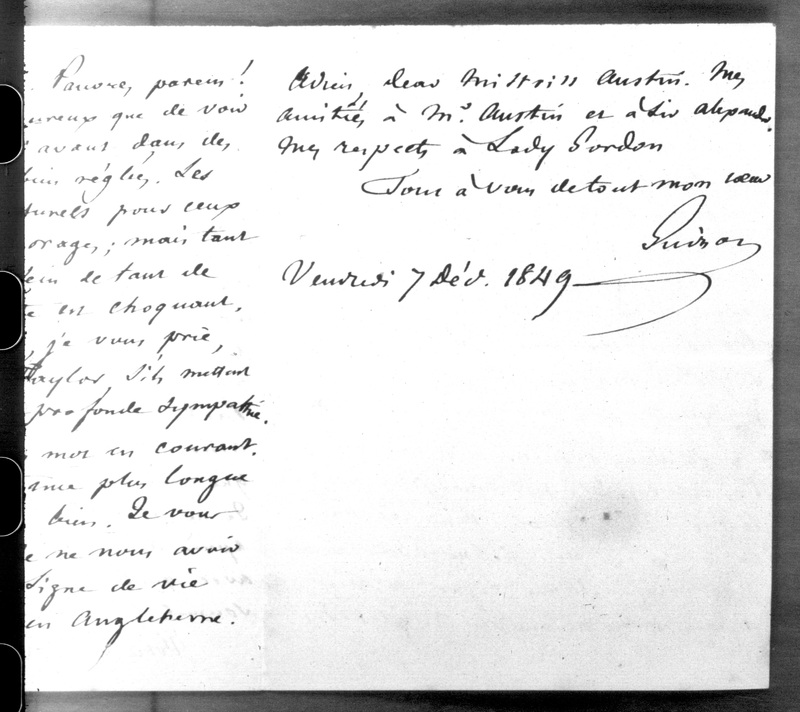 Pauvres parens!
que de voir
avant dans des
réglés. Les
pour ceux
orages; mais tant
de tant de
en choquant.
je vous prie,
Taylor, s'ils mettent
profonde sympathie.
mot en courant.
plus longue
bien. Je vous
ne nous avoir
signe de vie
en Angleterre.
Adieu, dear Mistriss Austin. Mes
amitiés à Mr. Austin et à Sir Alexander.
Mes respects à Lady Gordon
Tout à vous de tout mon coeur
Guizot
Vendredi 7 Déc. 1849